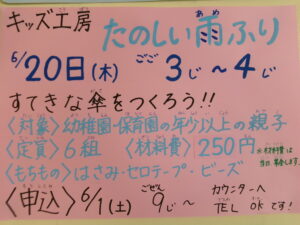 キッズ工房 たのしい雨ふり
6/20日(木) ごご3じ～4じ
すてきな傘をつくろう!!
〈対象〉幼稚園・保育園の年少以上の親子
〈定員〉6組 〈材料費〉250円 ※材料費は当日集金します
〈もちもの〉はさみ・セロテープ・ビーズ
〈申込〉6/1(土) ごぜん9じ～ カウンターへ TEL OKです!